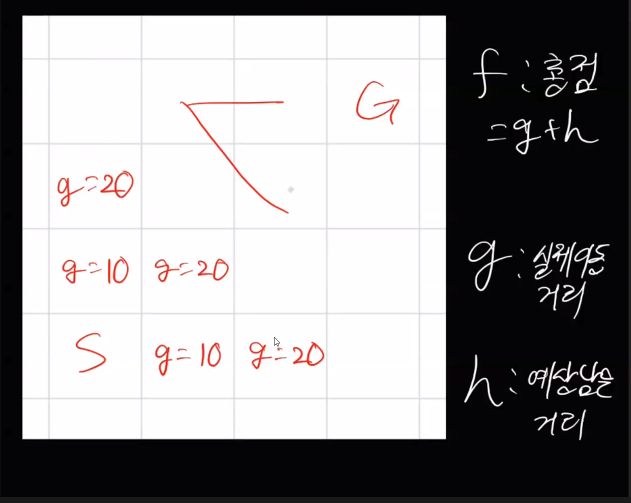 G
g=20
g=10 g=20
S g=10 g=20
f :총점
=g+h
g : 실제이동
거리
h : 예상남은
거리